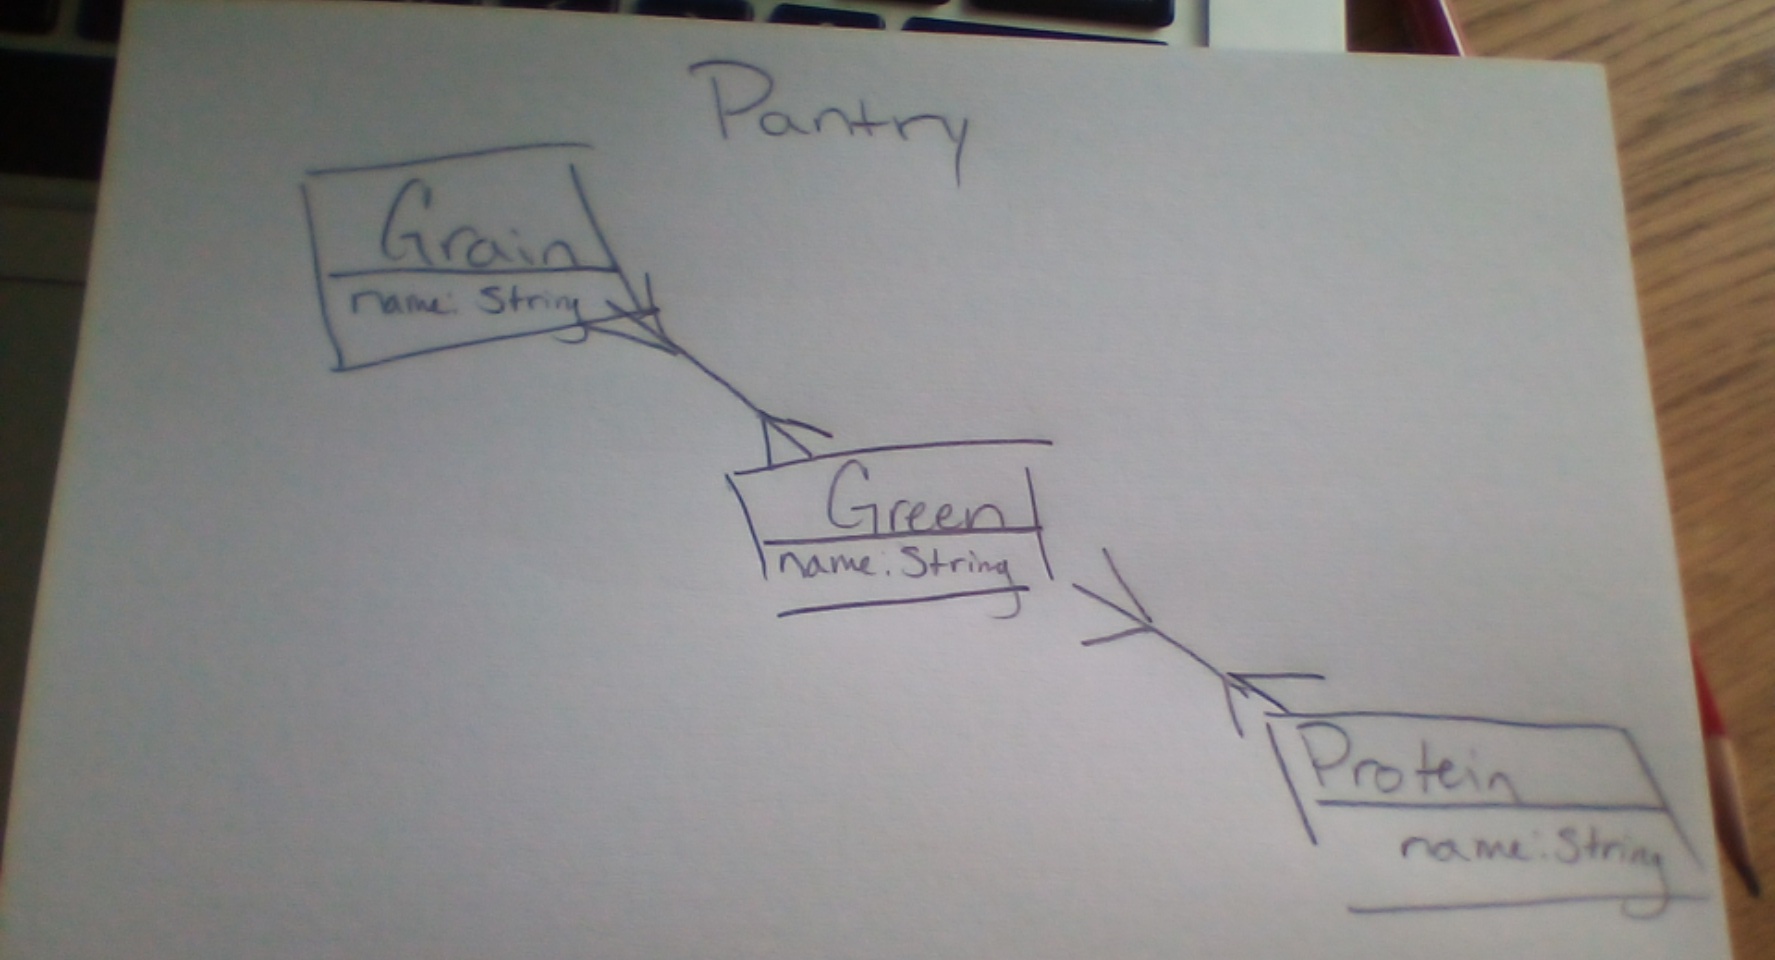 Pantry
Grain
name: String
Green
name: String
Protein
name: String